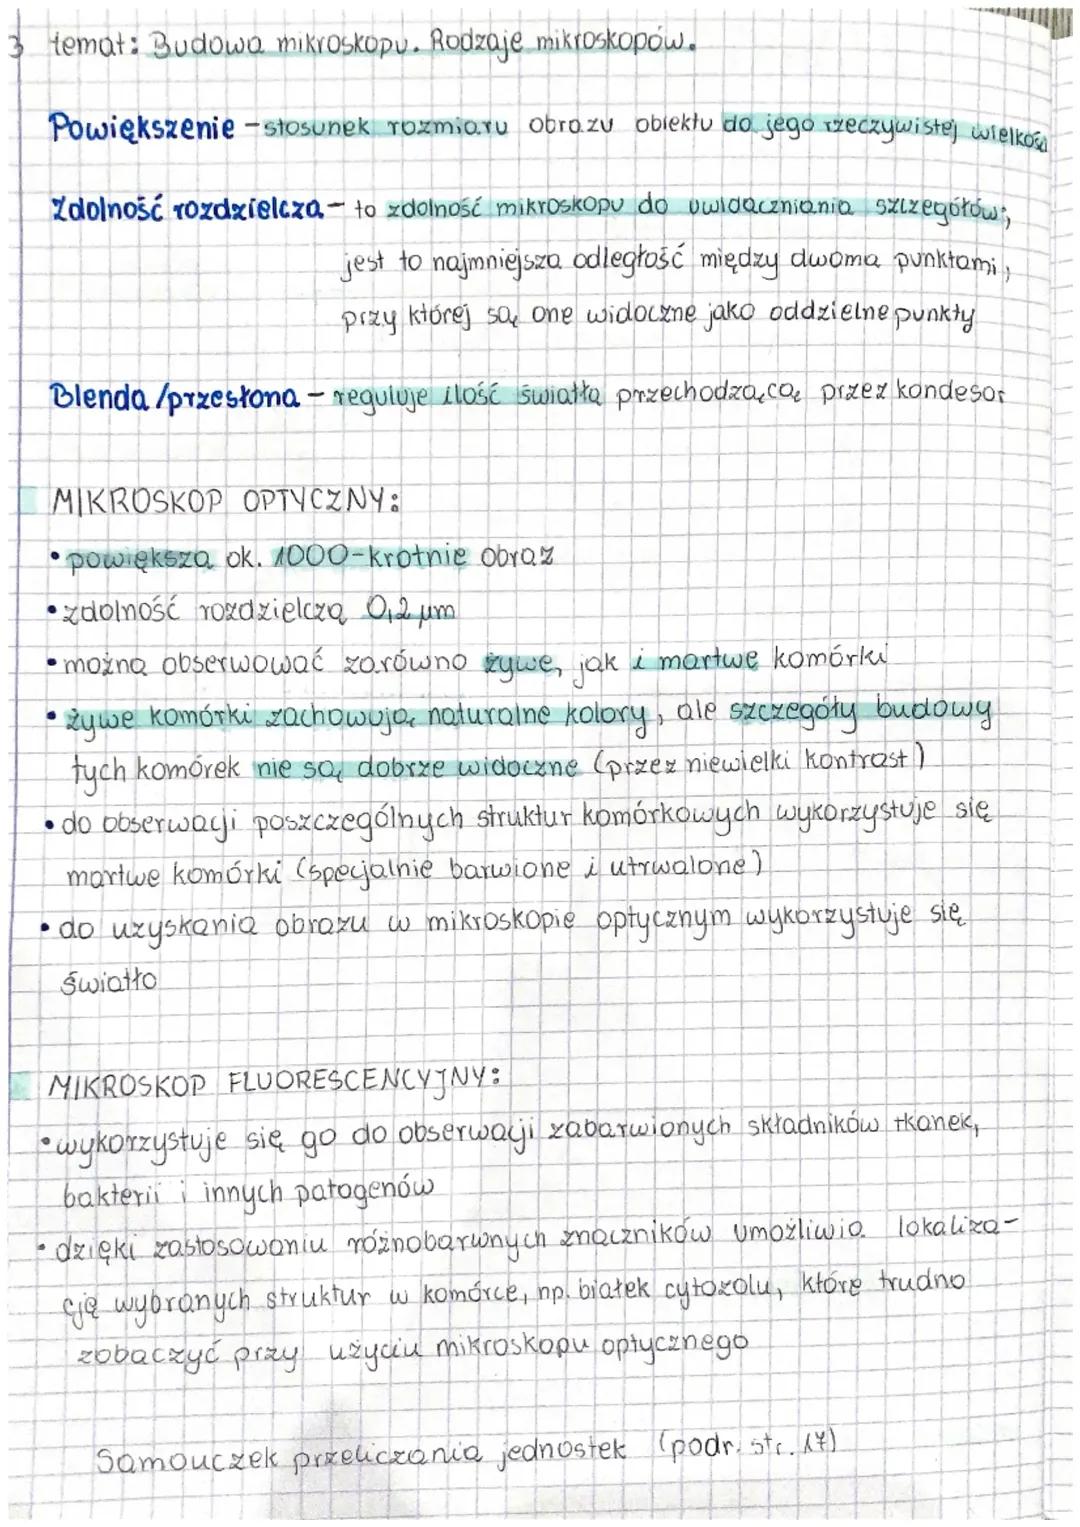 3 temat: Budowa mikroskopu. Rodzaje mikroskopów.
Powiększenie - stosunek rozmiaru obrazu obiektu do jego rzeczywistej wielkości
Zdolność rozdzielcza - to zdolność mikroskopu do uwidaczniania szczegółów;
jest to najmniejsza odległość między dwoma punktami,
przy której są one widoczne jako oddzielne punkty
Blenda /przesłona - reguluje ilość światła przechodzącą przez kondesor
MIKROSKOP OPTYCZNY:
• powiększa ok. 1000-krotnie obraz
• zdolność rozdzielczą 0,2 µm
• można obserwować zarówno żywe, jak i martwe komórki
• żywe komórki zachowują naturalne kolory, ale szczegóły budowy
tych komórek nie są dobrze widoczne (przez niewielki kontrast)
• do obserwacji poszczególnych struktur komórkowych wykorzystuje się
martwe komórki (specjalnie barwione i utrwalone)
• do uzyskania obrazu w mikroskopie optycznym wykorzystuje się
światło
MIKROSKOP FLUORESCENCYJNY:
• wykorzystuje się go do obserwacji zabarwionych składników tkanek,
bakterii i innych patogenów
• dzięki zastosowaniu różnobarwnych znaczników umożliwia lokaliza-
cję wybranych struktur w komórce, np. białek cytozolu, które trudno
zobaczyć przy użyciu mikroskopu optycznego
Samouczek przeliczania jednostek (podr. str. 17)